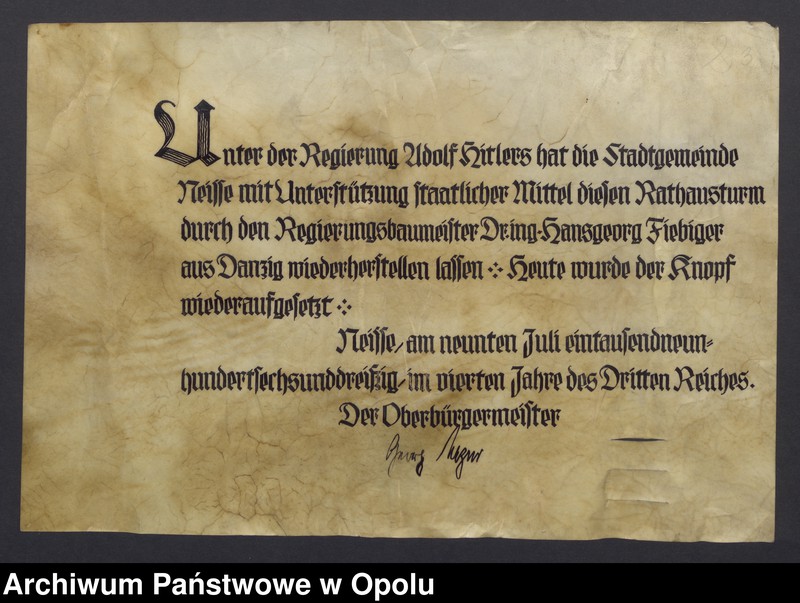 Unter der Regierung Adolf Hitlers hat die Stadtgemeinde
Neisse mit Unterstützung staatlicher Mittel diesen Rathausturm
durch den Regierungsbaumeister Dr.ing. Hansgeorg Fiebiger
aus Danzig wiederherstellen lassen ⁘ Heute wurde der Knopf
wiederaufgesetzt ⁘
Neisse, am neunten Juli eintausendneun=
hundertsechsunddreißig, im vierten Jahre des Dritten Reiches.
Der Oberbürgermeister
Georg
Archiwum Państwowe w Opolu